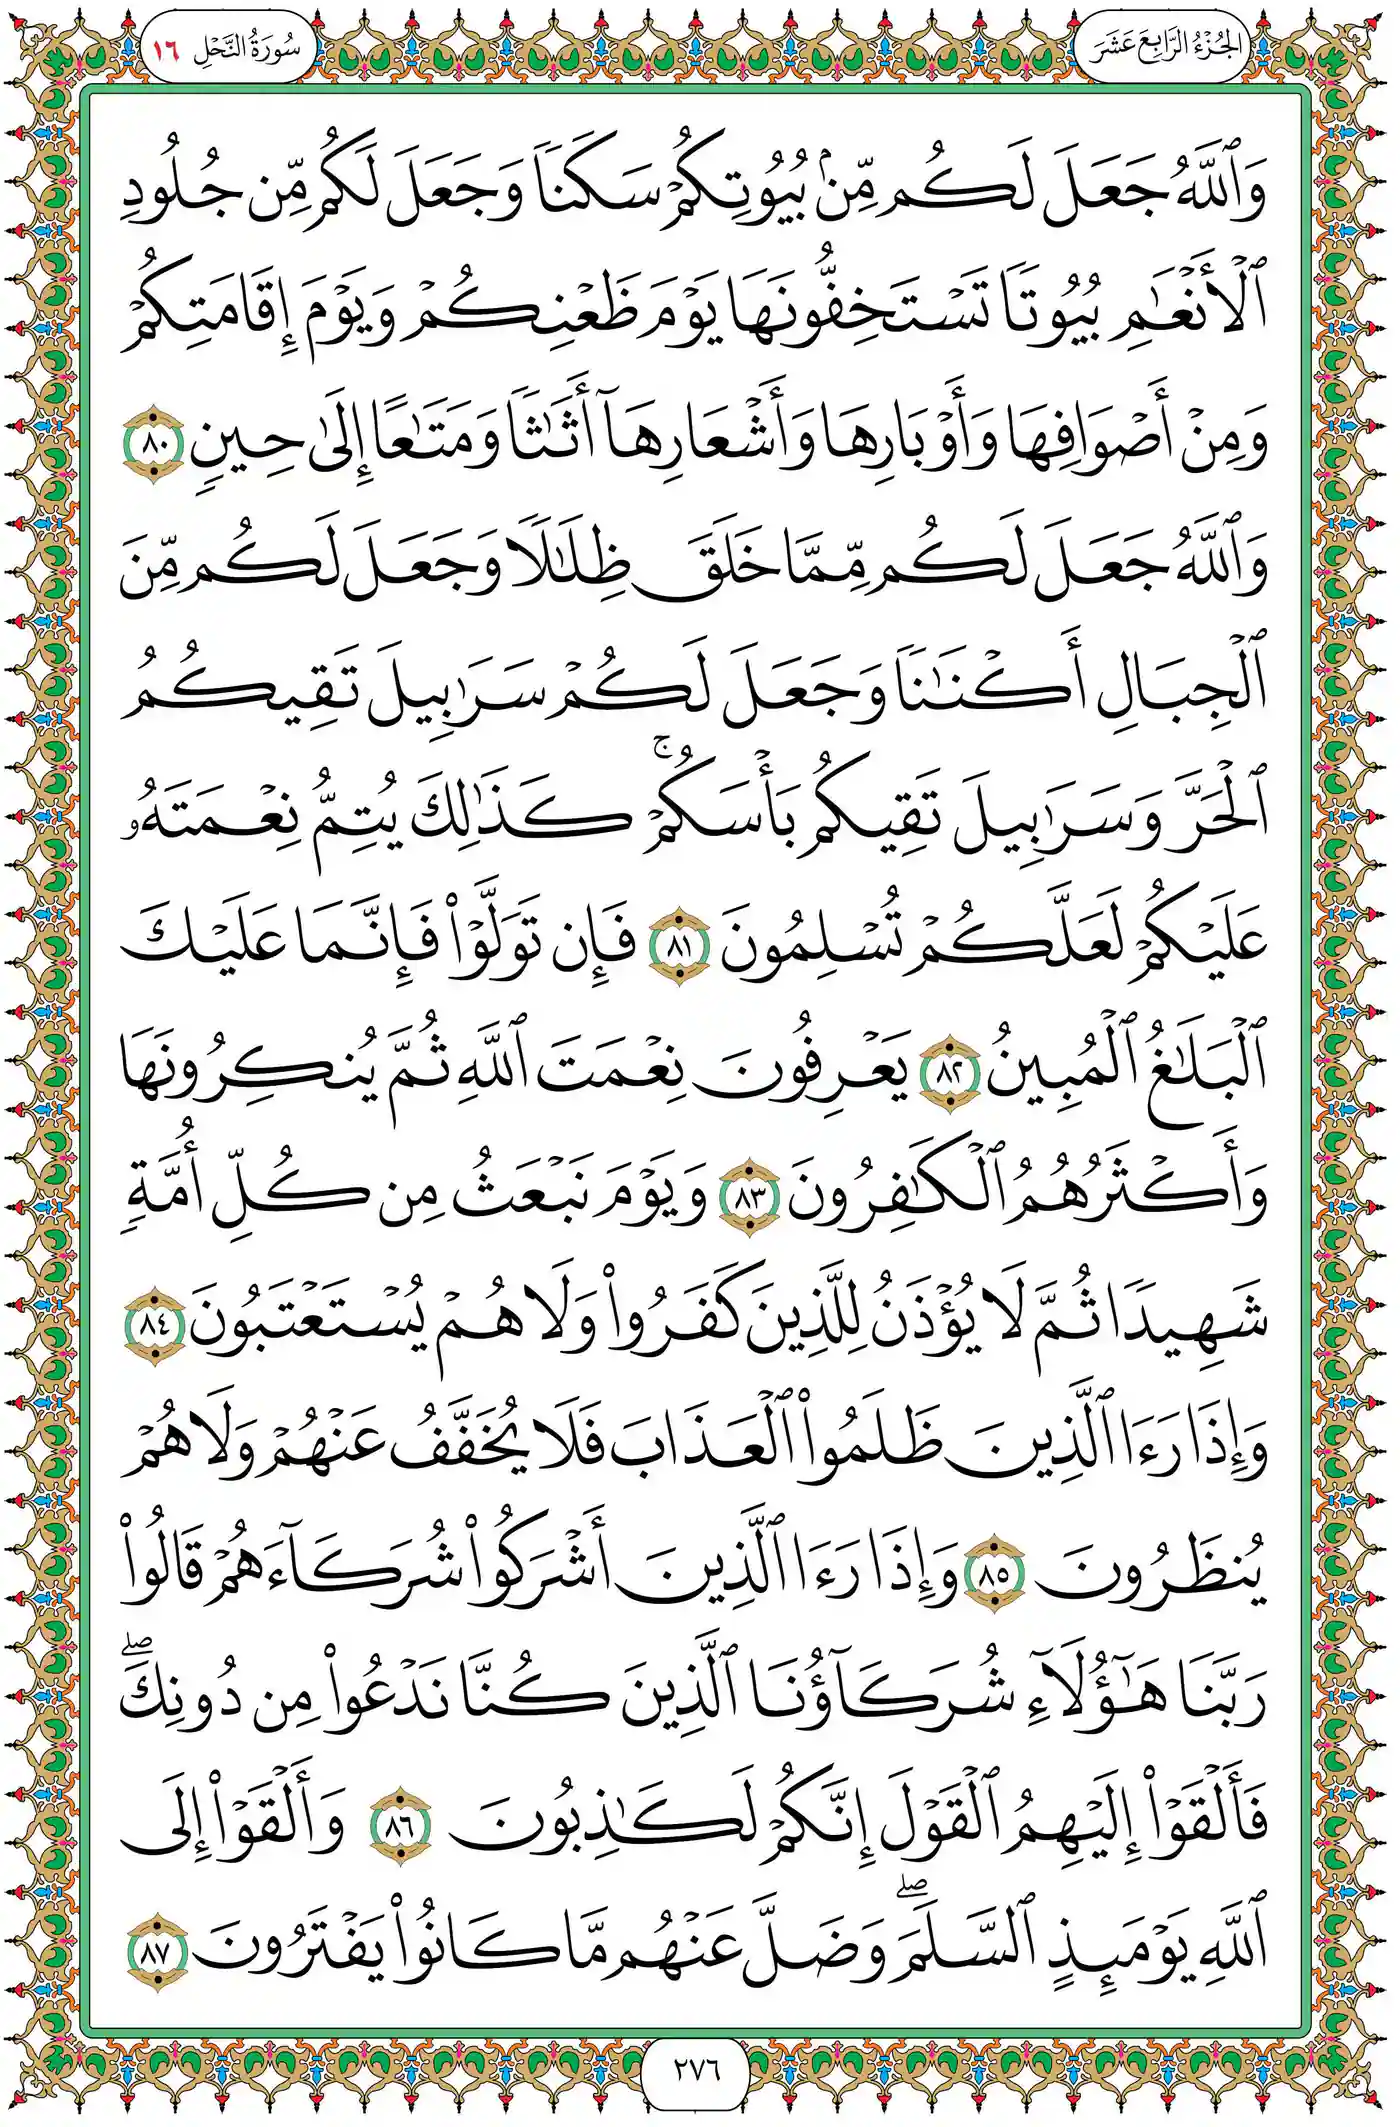 الجُزْءُ الرَّابِعَ عَشَرَ
سُورَةُ النَّحْلِ ١٦
وَٱللَّهُ جَعَلَ لَكُم مِّنۢ بُيُوتِكُمْ سَكَنًا وَجَعَلَ لَكُم مِّن جُلُودِ
ٱلْأَنْعَٰمِ بُيُوتًا تَسْتَخِفُّونَهَا يَوْمَ ظَعْنِكُمْ وَيَوْمَ إِقَامَتِكُمْ
وَمِنْ أَصْوَافِهَا وَأَوْبَارِهَا وَأَشْعَارِهَآ أَثَٰثًا وَمَتَٰعًا إِلَىٰ حِينٍ ٨٠
وَٱللَّهُ جَعَلَ لَكُم مِّمَّا خَلَقَ ظِلَٰلًا وَجَعَلَ لَكُم مِّنَ
ٱلْجِبَالِ أَكْنَٰنًا وَجَعَلَ لَكُمْ سَرَٰبِيلَ تَقِيكُمُ
ٱلْحَرَّ وَسَرَٰبِيلَ تَقِيكُم بَأْسَكُمْ ۚ كَذَٰلِكَ يُتِمُّ نِعْمَتَهُۥ
عَلَيْكُمْ لَعَلَّكُمْ تُسْلِمُونَ ٨١ فَإِن تَوَلَّوْا۟ فَإِنَّمَا عَلَيْكَ
ٱلْبَلَٰغُ ٱلْمُبِينُ ٨٢ يَعْرِفُونَ نِعْمَتَ ٱللَّهِ ثُمَّ يُنكِرُونَهَا
وَأَكْثَرُهُمُ ٱلْكَٰفِرُونَ ٨٣ وَيَوْمَ نَبْعَثُ مِن كُلِّ أُمَّةٍ
شَهِيدًا ثُمَّ لَا يُؤْذَنُ لِلَّذِينَ كَفَرُوا۟ وَلَا هُمْ يُسْتَعْتَبُونَ ٨٤
وَإِذَا رَءَا ٱلَّذِينَ ظَلَمُوا۟ ٱلْعَذَابَ فَلَا يُخَفَّفُ عَنْهُمْ وَلَا هُمْ
يُنظَرُونَ ٨٥ وَإِذَا رَءَا ٱلَّذِينَ أَشْرَكُوا۟ شُرَكَآءَهُمْ قَالُوا۟
رَبَّنَا هَٰٓؤُلَآءِ شُرَكَآؤُنَا ٱلَّذِينَ كُنَّا نَدْعُوا۟ مِن دُونِكَ ۖ
فَأَلْقَوْا۟ إِلَيْهِمُ ٱلْقَوْلَ إِنَّكُمْ لَكَٰذِبُونَ ٨٦ وَأَلْقَوْا۟ إِلَى
ٱللَّهِ يَوْمَئِذٍ ٱلسَّلَمَ ۖ وَضَلَّ عَنْهُم مَّا كَانُوا۟ يَفْتَرُونَ ٨٧
٢٧٦